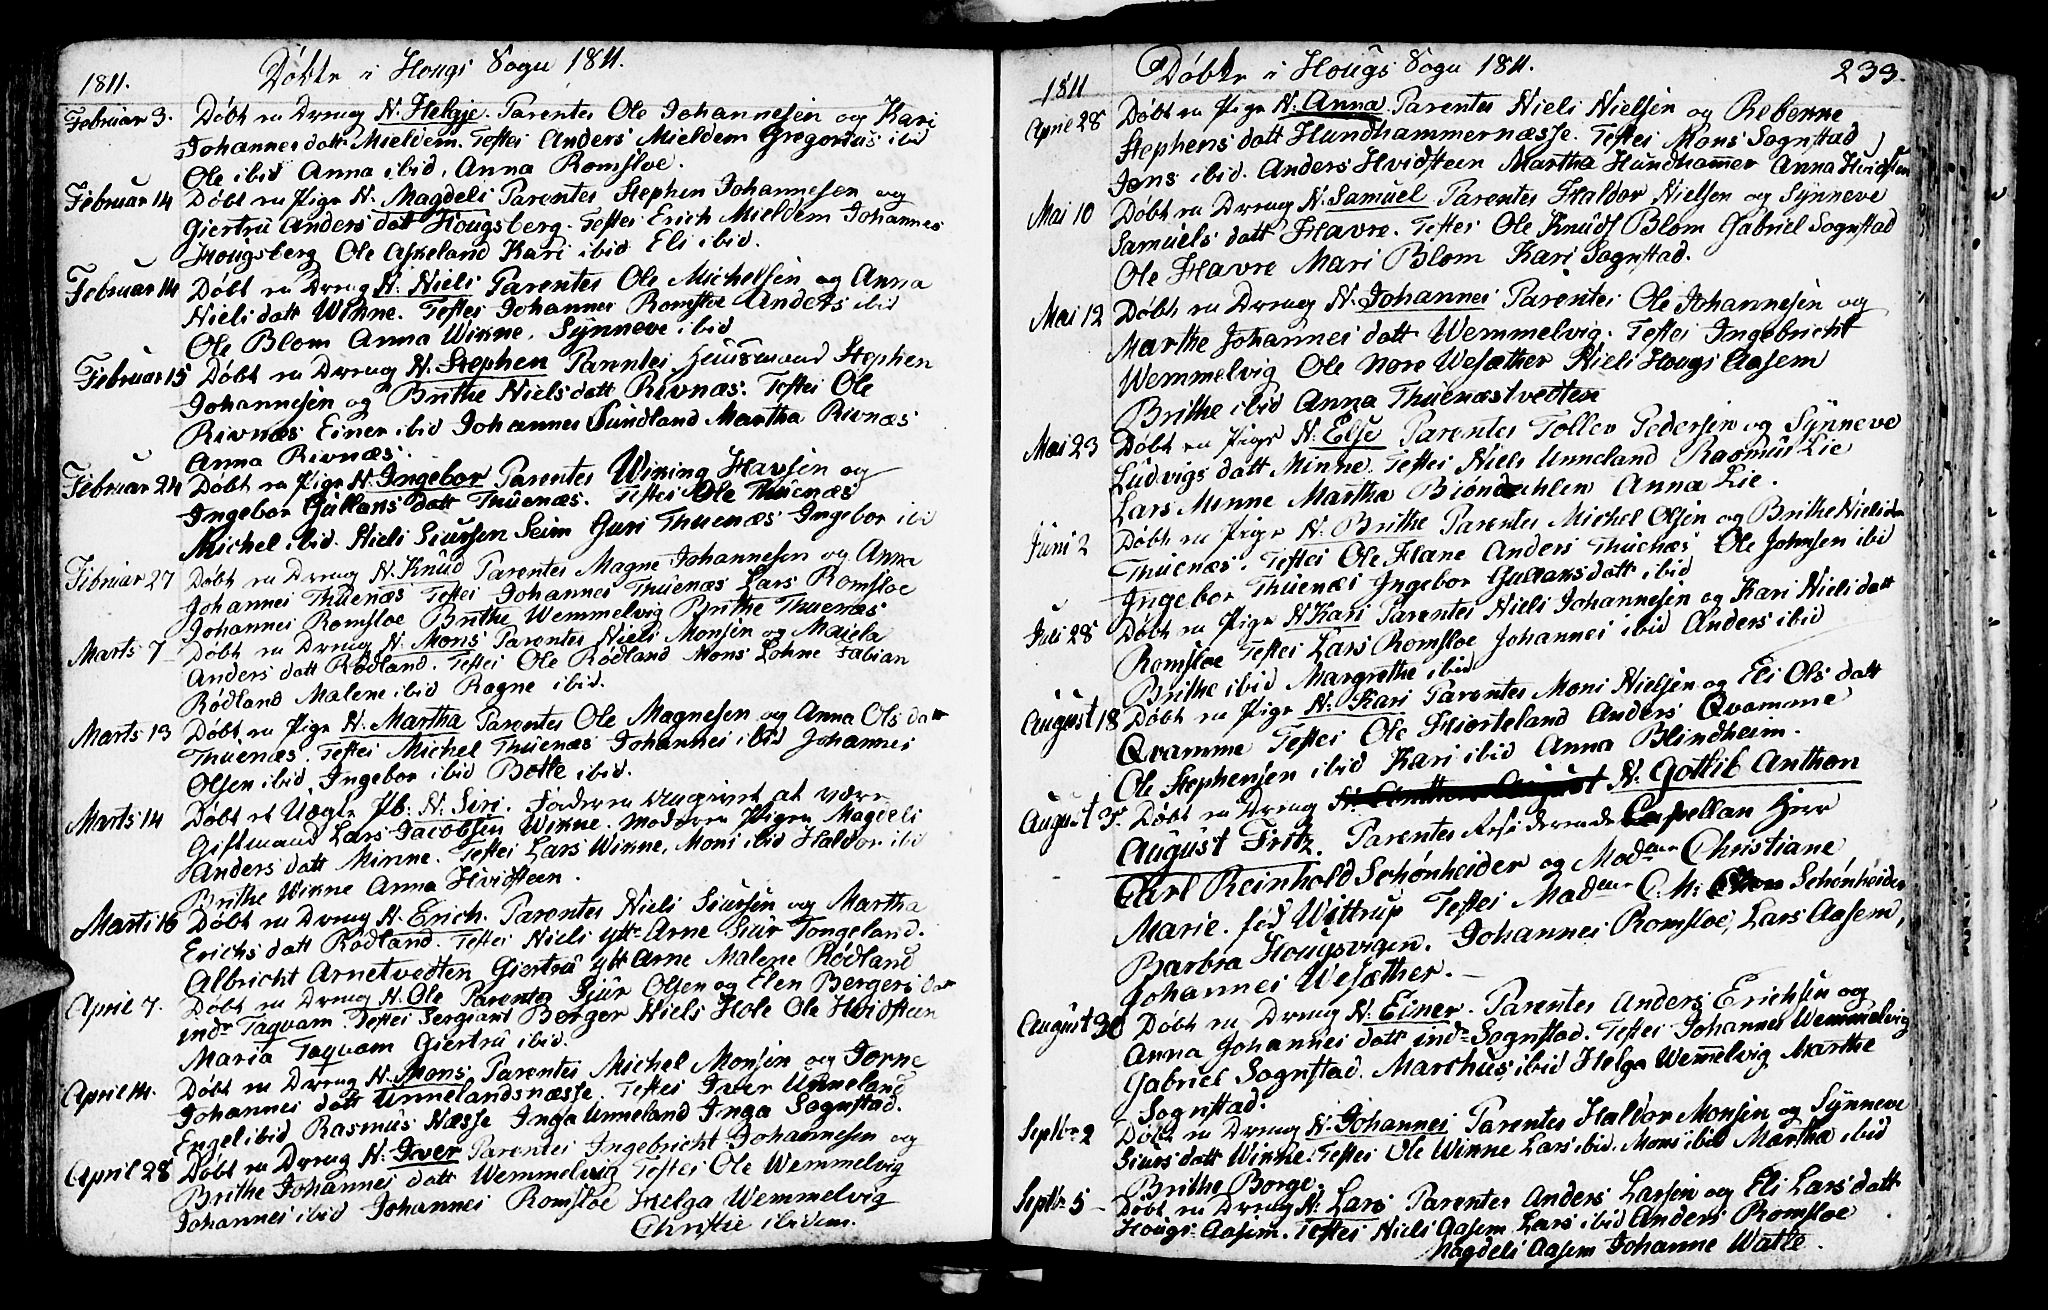 1811. Døbte i Hougs Sogn 1811.
Februar 3. Døbt en Dreng N. Helgje. Parentes Ole Johannesen og Kari
Johannes datt Mieldem. Testes Anders Mieldem Gregorius ibid
Ole ibid Anna ibid, Anna Romsloe.
Februar 14 Døbt en Pige N. Magdeli Parentes Stephen Johannesen og
Giertru Anders datt Hougsberg. Testes Erich Mieldem Johannes
Hougsberg Ole Askeland Kari ibid Eli ibid.
Februar 14 Døbt en Dreng N: Niels Parentes Ole Michelsen og Anna
Niels datt Winne. Testes Johannes Romsloe Anders ibid
Ole Blom Anna Winne, Synneve ibid
Februar 15 Døbt en Dreng N. Stephen Parentes Huusmand Stephen
Johannesen og Brithe Niels datt Rivnæs. Testes Ole
Rivnæs Einer ibid Johannes Sundland Martha Rivnæs
Anna Rivnæs.
Februar 24 Døbt en Pige N. Ingebor Parentes Wiking Havsen og
Ingebor Gullaks datt Thuenæs. Testes Ole Thuenæs
Michel ibid. Niels Siursen Seim Guri Thuenæs Ingebor ibid
Februar 27 Døbt en Dreng N. Knud Parentes Magne Johannesen og Anna
Johannes Thuenæs Testes Johannes Thuenæs Lars Romsloe
Johannes Romsloe Brithe Wemmelvig Brithe Thuenæs
Marts 7 Døbt en Dreng N. Mons Parentes Niels Monsen og Maiela
Anders datt Rødland. Testes Ole Rødland Mons Lohne Fabian
Rødland Malene ibid Ragne ibid.
Marts 13 Døbt en Pige N. Martha Parentes Ole Magnesen og Anna Ols datt
Thuenæs. Testes Michel Thuenæs Johannes ibid Johannes
Olsen ibid, Ingebor ibid Botle ibid.
Marts 14 Døbt et Uægte Pb. N. Siri. Faderen angivet at være
Giftmand Lars Jacobsen Winne. Moderen Pigen Magdeli
Anders datt Minne. Testes Lars Winne, Mons ibid Haldor ibid
Brithe Winne Anna Hvidsteen.
Marts 16 Døbt en Dreng N. Erich. Parentes Niels Siursen og Martha
Erichs datt Rødland. Testes Niels ytt- Arne Siur Tongeland.
Albricht Arnetvedten Giertru ytt Arne Malene Rødland
April 7. Døbt en Dreng N. Ole Parentes Siur Olsen og Elen Bergers datt
indr Taqvam. Testes Sergiant Berger Niels Hole Ole Hvidsteen
Maria Taqvam Giertru ibid.
April 14. Døbt en Dreng N. Mons Parentes Michel Monsen og Jorne
Johannes datt Unnelandsnæsse. Testes Iver Unneland
Engel ibid Rasmus Næsse Inga Unneland Inga Sognstad.
April 28 Døbt en Dreng N. Iver Parentes Ingebricht Johannesen og
Brithe Johannes datt Wemmelvig Testes Ole Wemmelvig
Johannes ibid Johannes Romsloe Helga Wemmelvig
Christie ibidem.
1811 Døbte i Hougs Sogn 1811. 233.
April 28 Døbt en Pige N. Anna. Parentes Niels Nielsen og Rebenne
Stephens datt Hundhammernæsse. Testes Mons Sognstad
Jens ibid. Anders Hvidsteen Martha Hundhammer Anna Hvidsteen
Mai 10 Døbt en Dreng N. Samuel Parentes Haldor Nielsen og Synneve
Samuels datt Havre. Testes Ole Knuds Blom Gabriel Sognstad
Ole Havre Mari Blom Kari Sognstad.
Mai 12 Døbt en Dreng N. Johannes Parentes Ole Johannesen og
Marthe Johannes datt Wemmelvig. Testes Ingebricht
Wemmelvig Ole Nore Wesæther Niels Hougs Aasem
Brithe ibid Anna Thuenæstvedten
Mai 23 Døbt en Pige N. Else Parentes Tollev Pedersen og Synneve
Ludvigs datt Minne. Testes Niels Unneland Rasmus Lie
Lars Minne Martha Biøndahlen Anna Lie.
Juni 2 Døbt en Pige N. Brithe Parentes Michel Olsen og Brithe Niels datt
Thuenæs. Testes Ole Flane Anders Thuenæs Ole Johnsen ibid
Ingebor Thuenæs Ingebor Gullaks datt ibid
Juli 28 Døbt en Pige N Kari Parentes Niels Johannesen og Kari Niels datt
Romsloe Testes Lars Romsloe Johannes ibid Anders ibid
Brithe ibid Margrethe ibid
August 18 Døbt en Pige N. Kari Parentes Mons Nielsen og Eli Ols datt
Qvamme Testes Ole Hiorteland Anders Qvamme
Ole Stephensen ibid Kari ibid Anna Blindheim.
August Døbt en Dreng N. Gottlib Anthon
August Fritz. Parentes Residerende Capellan Herr
Carl Reinhold Schønheider og Madme Christiane
Marie. fød Wittrup Testes Madme C. M: Schønheider
Barbra Hougsvigen. Johannes Romsloe, Lars Aasem,
Johannes Wesæther.
August 30 Døbt en Dreng N. Einer. Parentes Anders Erichsen og
Anna Johannes datt indr Sognstad. Testes Johannes Wemmelvig
Gabriel Sognstad. Marchus ibid Helga Wemmelvig Marthe
Sognstad.
Septbr 2 Døbt en Dreng N. Johannes Parentes Haldor Monsen og Synneve
Siurs datt Winne. Testes Ole Winne Lars ibid. Mons ibid Martha ibid
Brithe Borge.
Septbr 5 Døbt en Dreng N. Lars Parentes Anders Larsen og Eli Lars datt
Hougs Aasem. Testes Niels Aasem Lars ibid Anders Romsloe
Magdeli Aasem Johanne Watle.